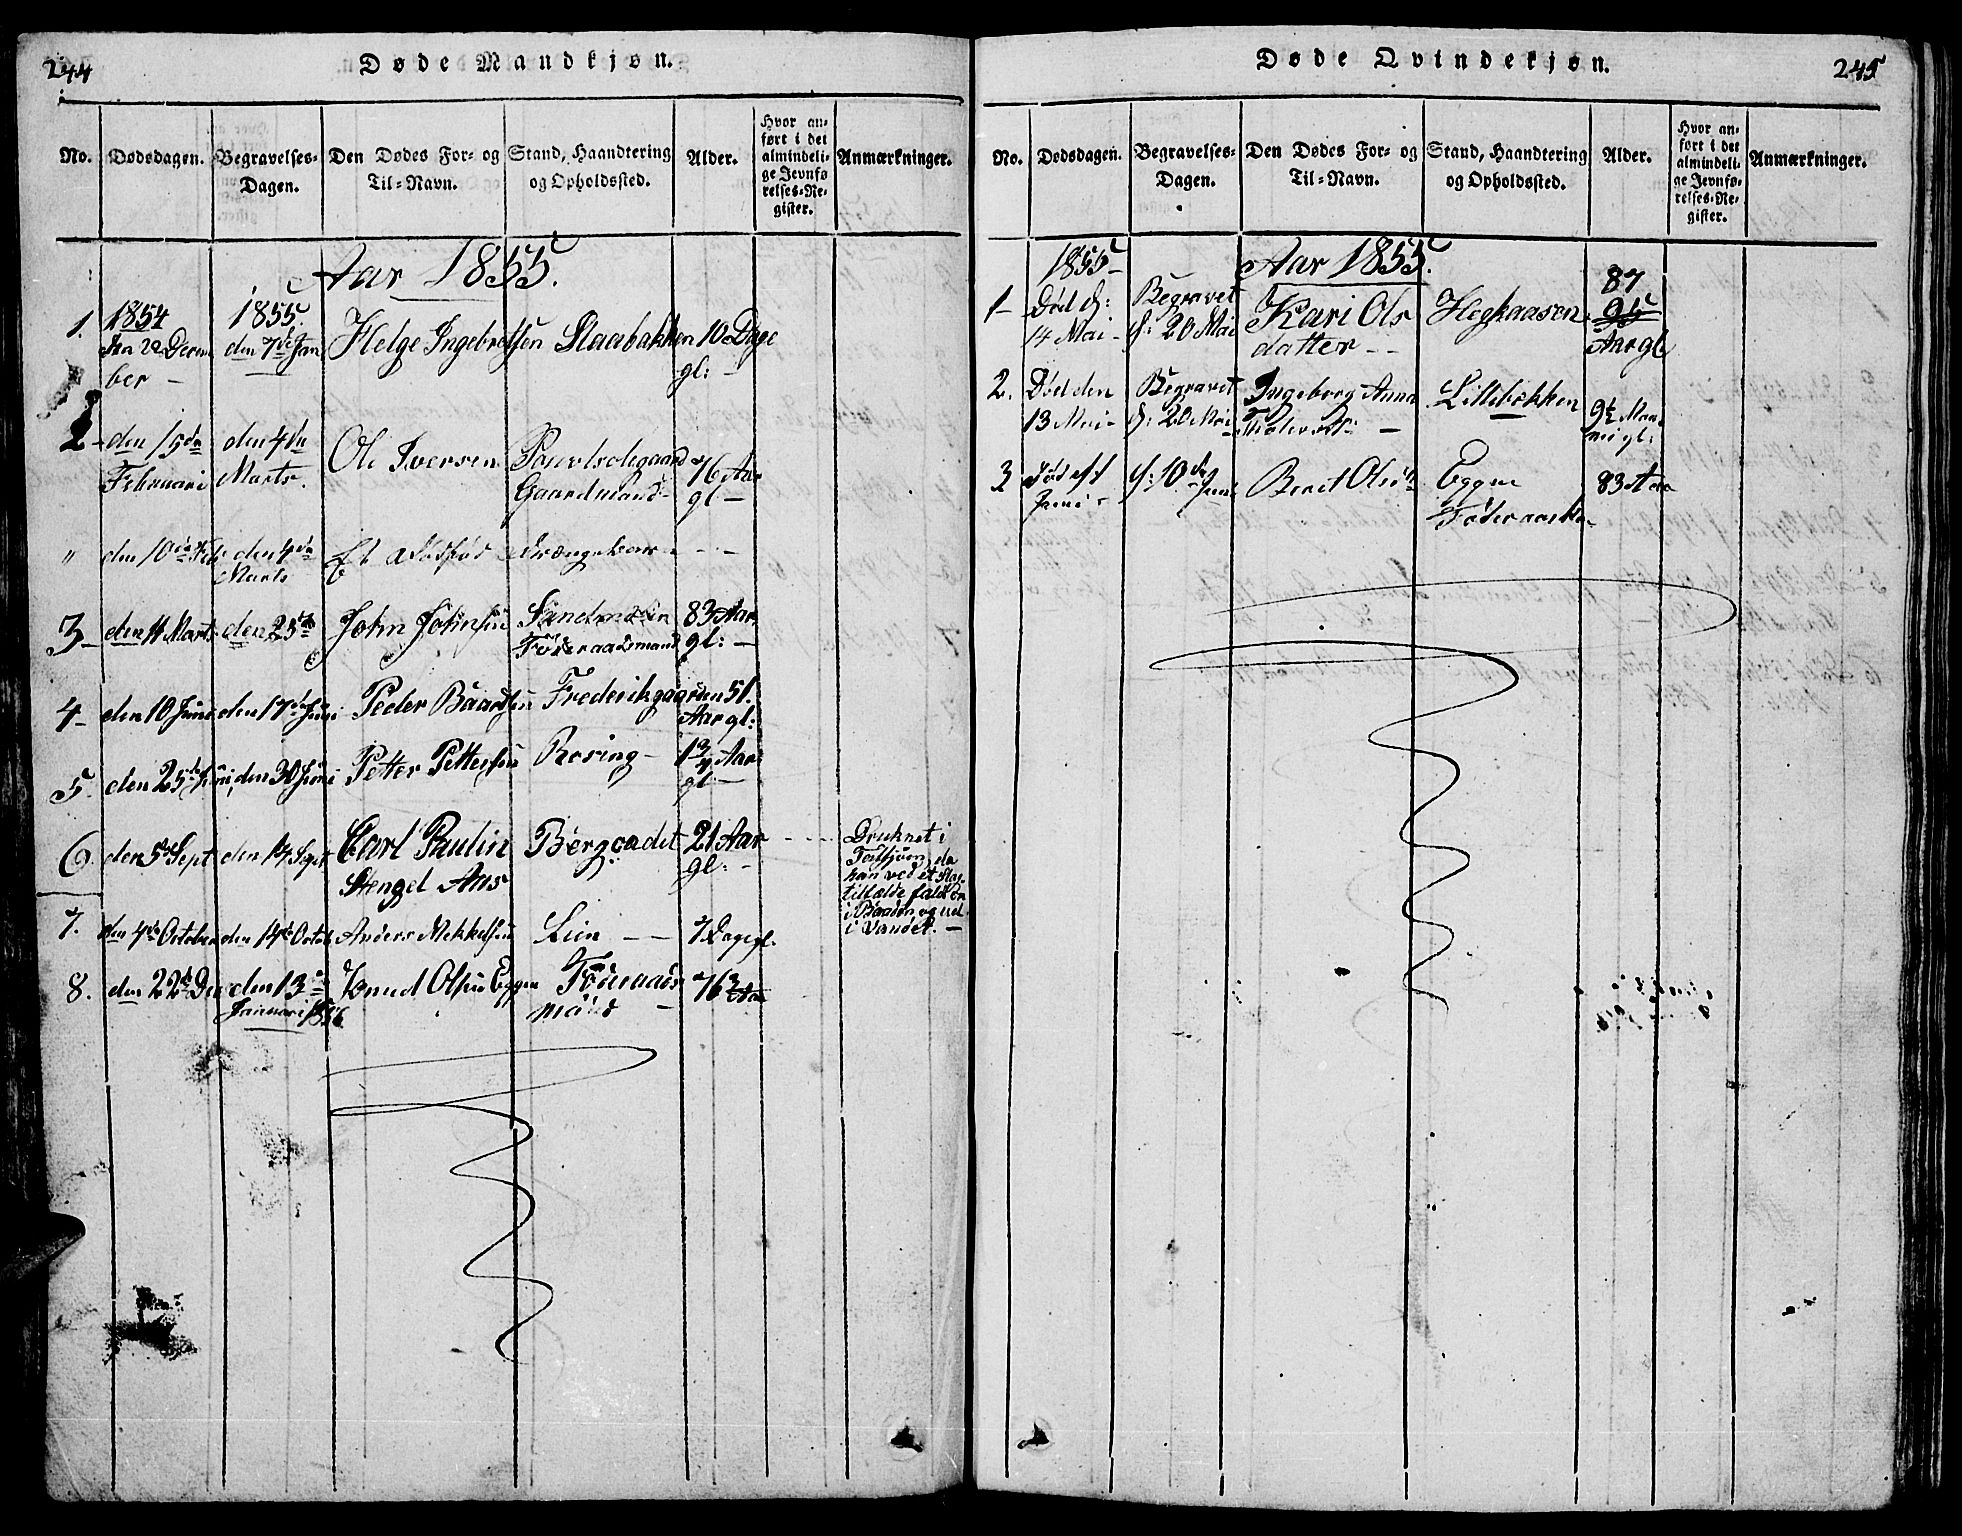 244
Døde Mandkjøn.
No.
Dødsdagen.
Begravelses-
Dagen.
Den Dødes For- og
Til-Navn.
Stand, Haandtering
og Opholdssted.
Alder.
Hvor an-
ført i det
almindeli-
ge Jevnfø
relses-Re-
gister.
Anmærkninger.
Aar 1855.
1.
1854
den 22 Decem
ber –
1855.
den 7de Jan
Helge Ingebretsen
Slaabakken
10 Dage
gl: –
2 –
den 15de
Februari
den 4de
Marts.
Ole Iversen
Gaardmand –
76 Aar
gl –
"
den 10de Feb
den 4de
Marts
Et dødfød
– – –
3 –
den 11 Marts
den 25de
John Johnsen
Sandmoen
Føderaadsmand
83 Aar
gl: –
4 –
den 10 Juni
den 17de Juni
Peder Baardsen
Frederikgaarden
51.
Aar gl:
5.
den 25de Juni
den 30 Juni
Petter Pettersen
Rosing –
1 3/4 Aar
gl –
6.
den 5te Sept
den 14 Sept
Carl Paulin
Stengel Aas
Bergcadet
21 Aar
gl: –
Druknet i
da
han ved et Slag-
tilfælde faldt om
i Baaden og ud
i Vandet. –
7.
den 4de October
den 14de Octob
Anders Mikkelsen
Lien – –
7 Dage gl.
8.
den 22de Dec
den 13de
Januari 1856
Knud Olsen Eggen
Føderaads
mand –
76 3/4 Aar
Døde Qvindekjøn.
245
No.
Dødsdagen.
Begravelses-
Dagen.
Den Dødes For- og
Til-Navn.
Stand, Haandtering
og Opholdssted.
Alder.
Hvor an-
ført i det
almindeli-
ge Jevnfø-
relses-Re-
gister.
Anmærkninger.
1855 –
Aar 1855.
1 –
Død d:
14 Mai –
Begravet
d: 20 Mai
Kari Ols
datter – –
Hegkaasen
87
95
Aar gl
2.
Død den
13 Mai –
Begravet
d: 20 Mai
Ingeborg Anna
Lillebekken
9 1/2 Maa
ned gl:
3
Død d: 1
Juni –
d: 10de Juni
Beret Olsdt
Eggen
83 Aar